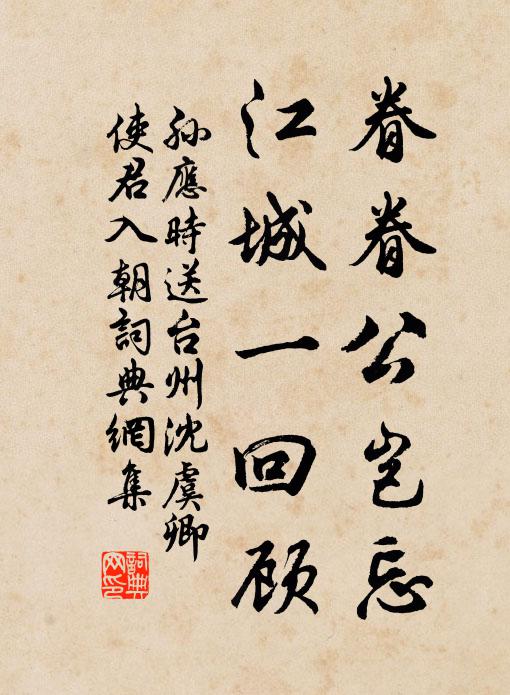 眷眷公岂忘
江城一回顾
孙應時送台州沈虞卿
使君入朝詞典網集
詞典网印